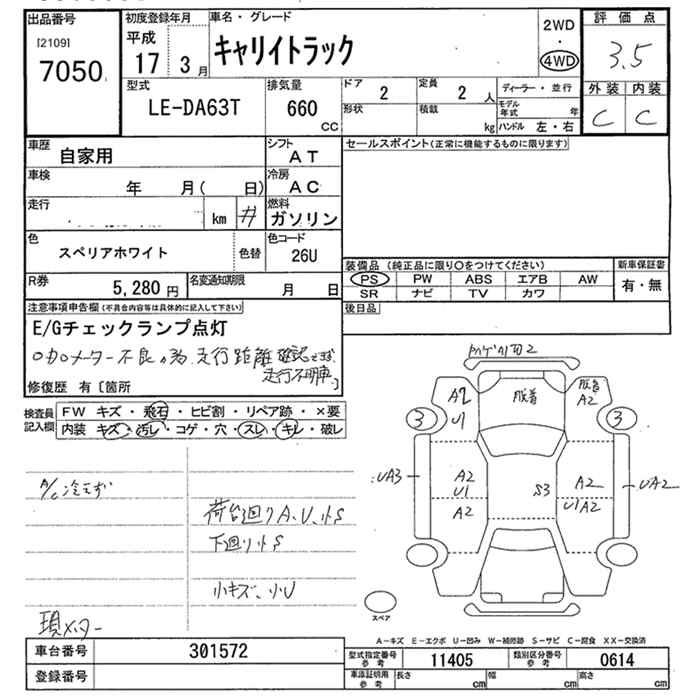 出品番号
[2109]
7050
初度登録年月
平成
17 3月
車名・グレード
キャリイトラック
2WD
・
4WD
評価点
3.5
外装 内装
C C
型式
LE-DA63T
排気量
660
CC
ドア
2
定員
2 人
形状
積載
kg
ディーラー・並行
モデル年式 年
ハンドル 左・右
車歴
自家用
シフト
AT
車検
年 月( 日)
冷房
AC
走行
km #
燃料
ガソリン
色
スペリアホワイト
色替
色コード
26U
R券
5,280 円
名変通知期限
月 日
セールスポイント(正常に機能するものに限ります)
装備品 (純正品に限り○をつけてください)
PS PW ABS エアB AW
SR ナビ TV カワ
新車保証書
有・無
後日品
注意事項申告欄(不具合内容等は具体的に記入して下さい)
E/Gチェックランプ点灯
メーター不良の為、走行距離確認できず、
走行不明車。
修復歴 有〔箇所 〕
検査員
記入欄
FW キズ・飛石・ヒビ割・リペア跡・×要
内装 キズ・汚レ・コゲ・穴・スレ・キレ・破レ
A/C冷えず
荷台廻りA、U、小S
下廻り小S
小キズ、小U
現メーター
2
A2
U1
脱着
脱着
A2
3
3
UA3
A2
U1
A2
S3
A2
U1A2
UA2
スペア
A-キズ E-エクボ U-凹み W-補修跡 S-サビ C-腐食 XX-交換済
車台番号
301572
登録番号
型式指定番号
参考
11405
類別区分番号
参考
0614
車庫証明用
参考
長さ cm
幅 cm
高さ cm